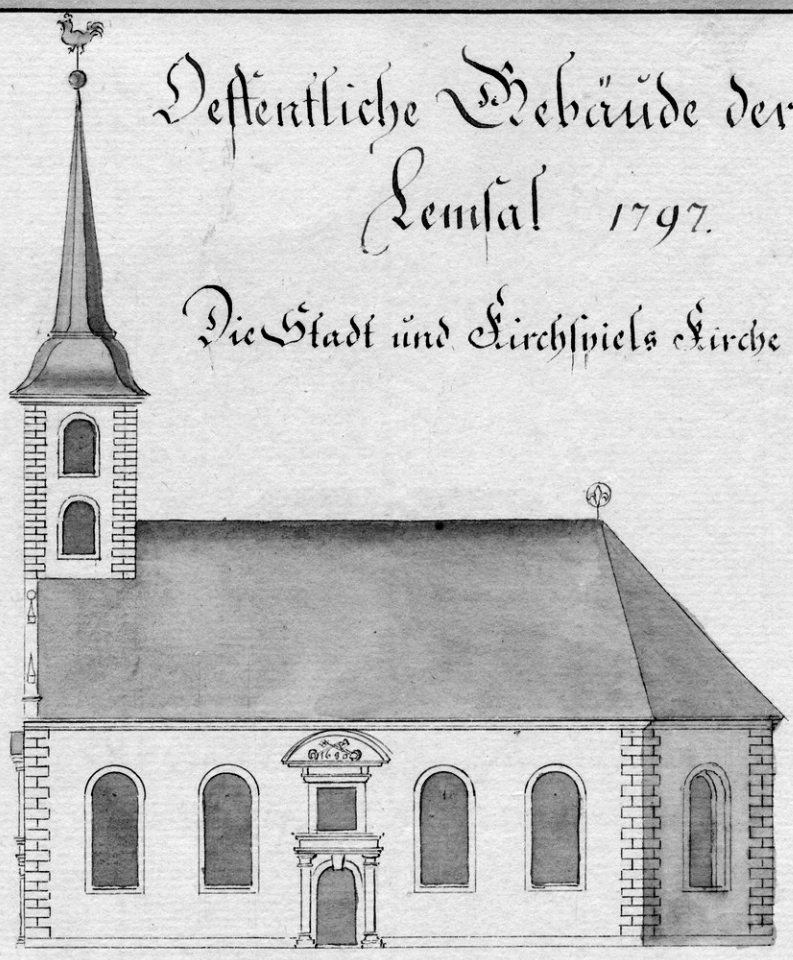 Oeffentliche Gebäude der
Lemsal 1797.
Die Stadt und Kirchspiels Kirche